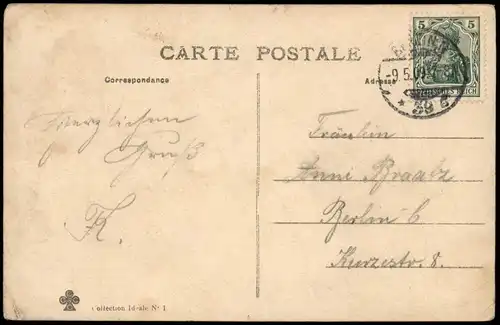 CARTE POSTALE
Correspondance
Adresse
5 5
BERLIN
-9.5.0
* 39 a
DEUTSCHES REICH
Herzlichen
Gruß
K.
Fräulein
Anni Braatz
Berlin C
Kurzestr. 8.
Collection Idéale N° 1